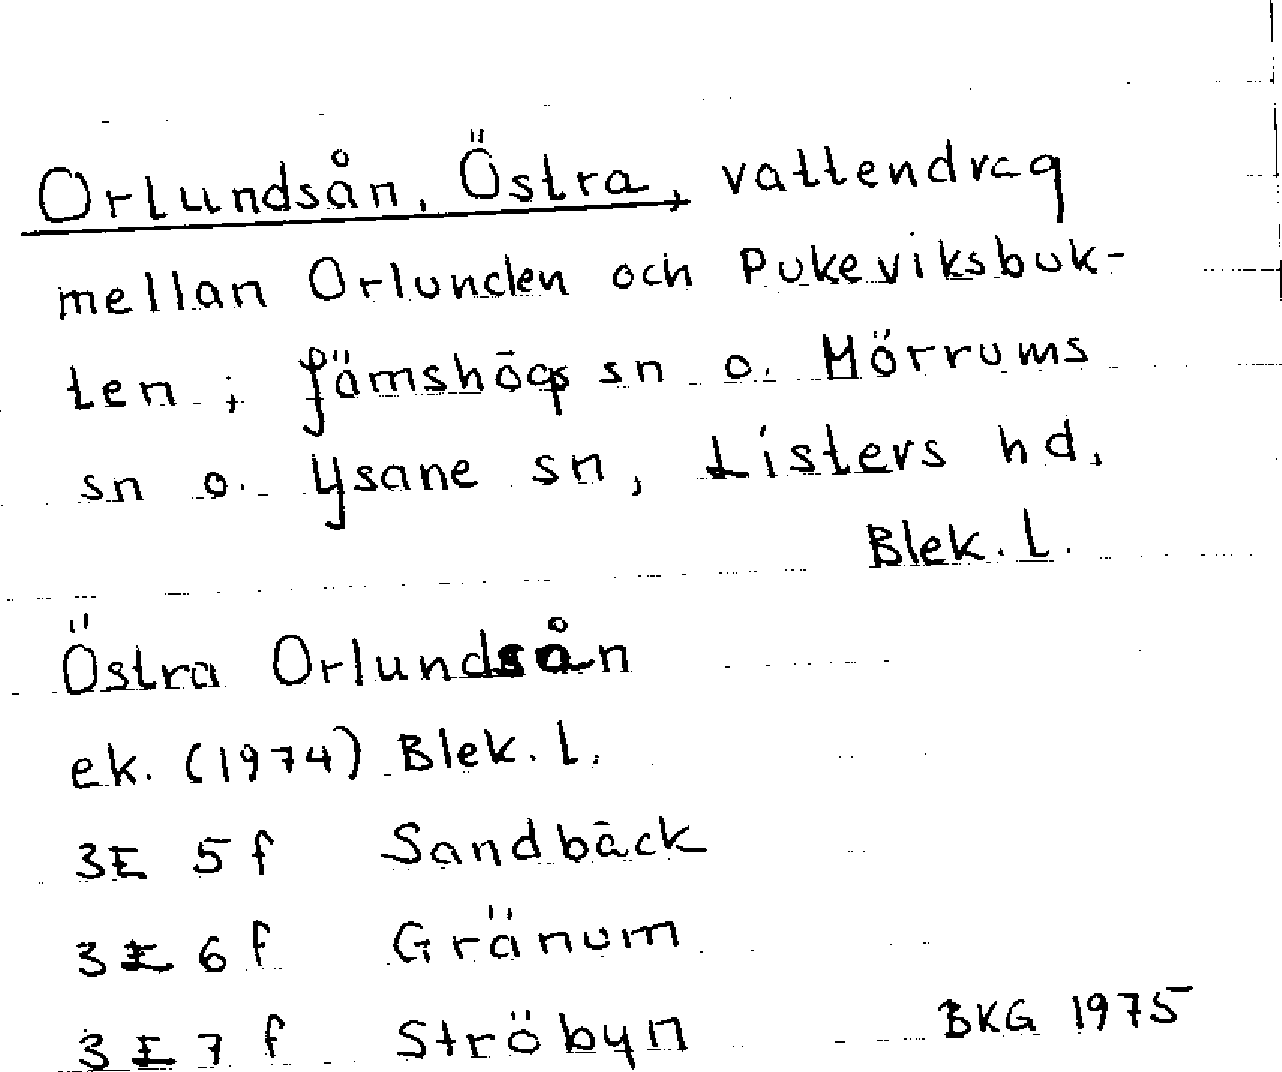 Orlundsån, Östra, vattendrag
mellan Orlunden och Pukeviksbuk-
ten; Jämshögs sn o. Mörrums
sn o. Ysane sn, Listers hd,
Blek. l.
Östra Orlundsån
ek. (1974) Blek. l.
3E 5f Sandbäck
3E 6f Gränum
3E 7f Ströbyn
BKG 1975